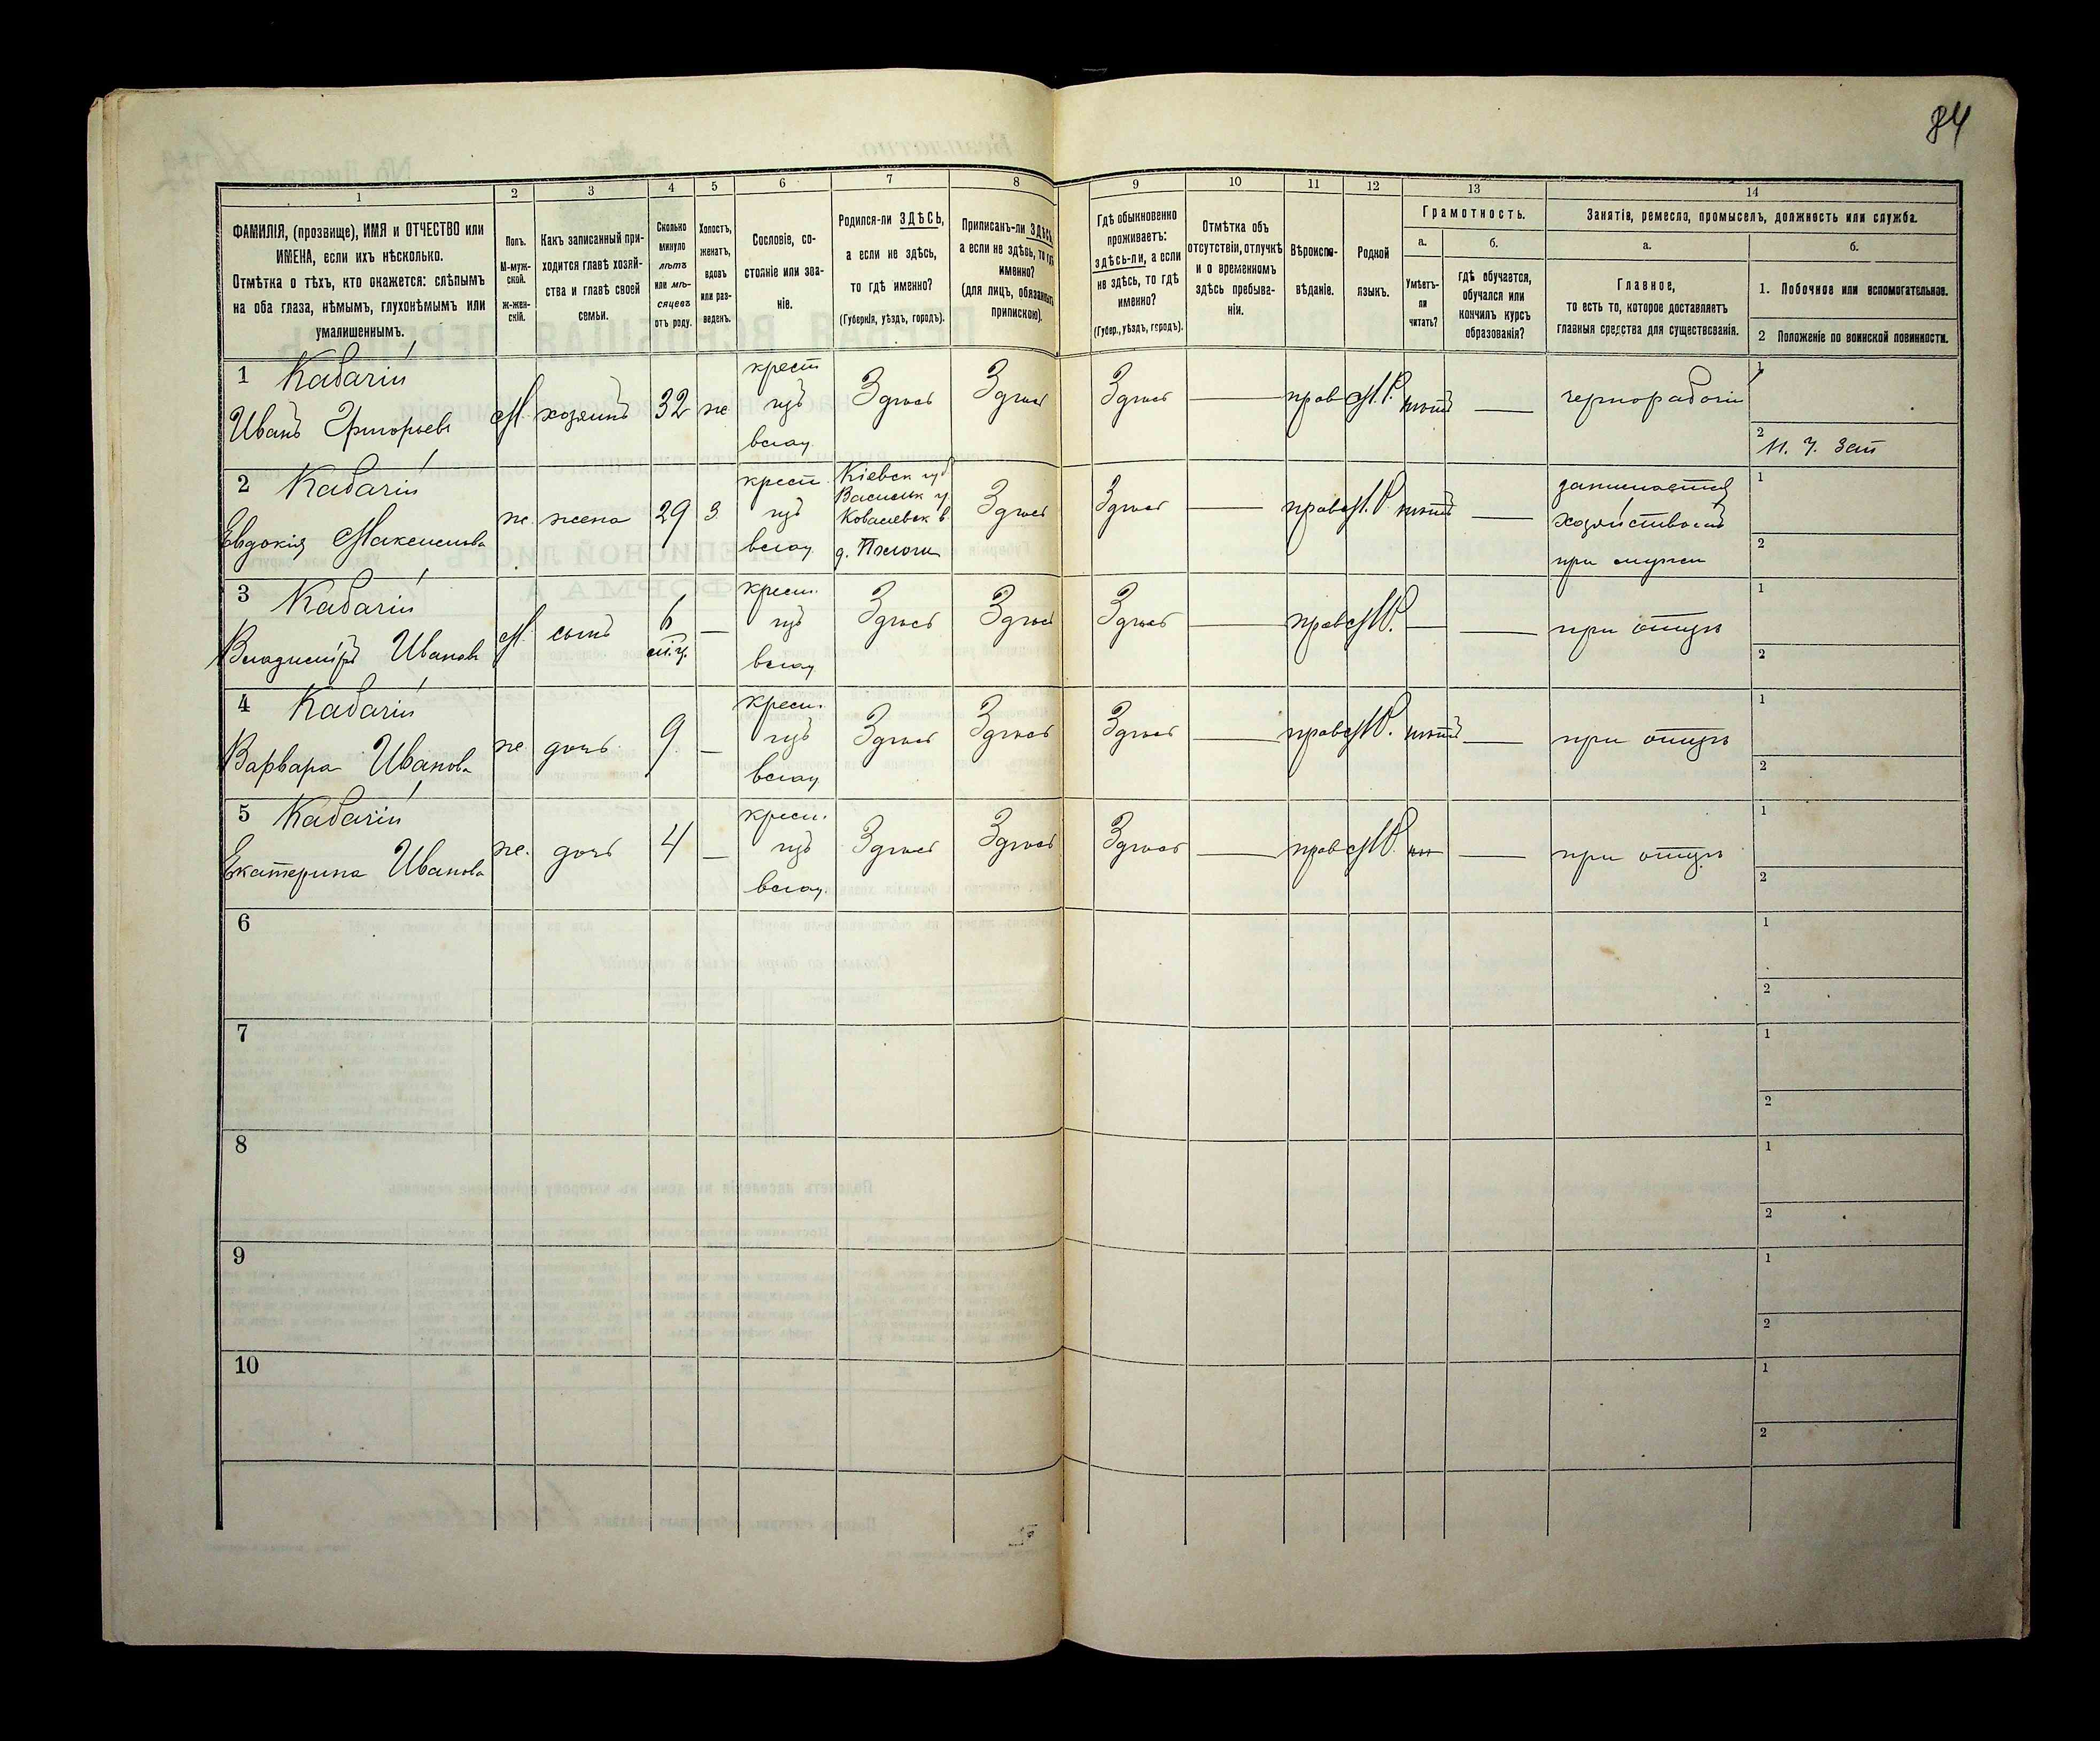 84
1 2 3 4 5 6 7 8 9 10 11 12 13 14
ФАМИЛІЯ, (прозвище), ИМЯ и ОТЧЕСТВО или
ИМЕНА, если ихъ нѣсколько.
Отмѣтка о тѣхъ, кто окажется: слѣпымъ
на оба глаза, нѣмымъ, глухонѣмымъ или
умалишеннымъ.
Полъ.
М-муж-
ской.
ж-жен-
скій.
Какъ записанный при-
ходится главѣ хозяй-
ства и главѣ своей
семьи.
Сколько
минуло
лѣтъ
или мѣ-
сяцевъ
отъ роду.
Холостъ,
женатъ,
вдовъ
или раз-
веденъ.
Сословіе, со-
стояніе или зва-
ніе.
Родился-ли ЗДѢСЬ,
а если не здѣсь,
то гдѣ именно?
(Губернія, уѣздъ, городъ).
Приписанъ-ли ЗДѢСЬ,
а если не здѣсь, то гдѣ
именно?
(для лицъ, обязанныхъ
припискою).
Гдѣ обыкновенно
проживаетъ:
здѣсь-ли, а если
не здѣсь, то гдѣ
именно?
(Губер., уѣздъ, городъ).
Отмѣтка объ
отсутствіи, отлучкѣ
и о временномъ
здѣсь пребыва-
ніи.
Вѣроиспо-
вѣданіе.
Родной
языкъ.
Грамотность.
а.
Умѣетъ-
ли
читать?
б.
гдѣ обучается,
обучался или
кончилъ курсъ
образованія?
Занятія, ремесло, промыселъ, должность или служба.
а.
Главное,
то есть то, которое доставляетъ
главныя средства для существованія.
б.
1. Побочное или вспомогательное.
2 Положеніе по воинской повинности.
1 Кабачій
Иванъ Григорьевъ М хозяинъ 32 же крест изъ Здѣсь Здѣсь Здѣсь — прав М.Р. нѣтъ — чернорабочій 1
2
2 Кабачій
Евдокія Максимова же. жена 29 З крест. изъ Кіевск губ Василк у. Ковалевск в. Здѣсь Здѣсь — прав М.Р. нѣтъ — занимается 1
хозяйствомъ
при мужѣ 2
3 Кабачій
Владиміръ Ивановъ М сынъ 6 — крест. изъ Здѣсь Здѣсь Здѣсь — прав М.Р. — — при отцѣ 1
2
4 Кабачій
Варвара Иванова же. дочь 9 — крест. изъ Здѣсь Здѣсь Здѣсь — прав М.Р. нѣтъ — при отцѣ 1
2
5 Кабачій
Екатерина Иванова же. дочь 4 — крест. изъ Здѣсь Здѣсь Здѣсь — прав М.Р. — при отцѣ 1
2
6 1
2
7 1
2
8 1
2
9 1
2
10 1
2